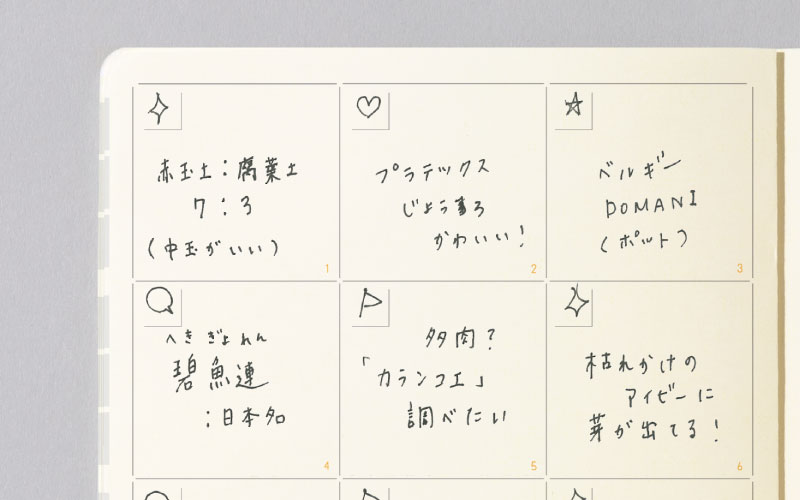 赤玉土：腐葉土
7：3
（中玉がいい）
1
プラテックス
じょうまろ
かわいい！
2
ベルギー
DOMANI
（ポット）
3
へきぎょれん
碧魚連
：日本名
4
多肉？
「カランコエ」
調べたい
5
枯れかけの
アイビーに
芽が出てる！
6